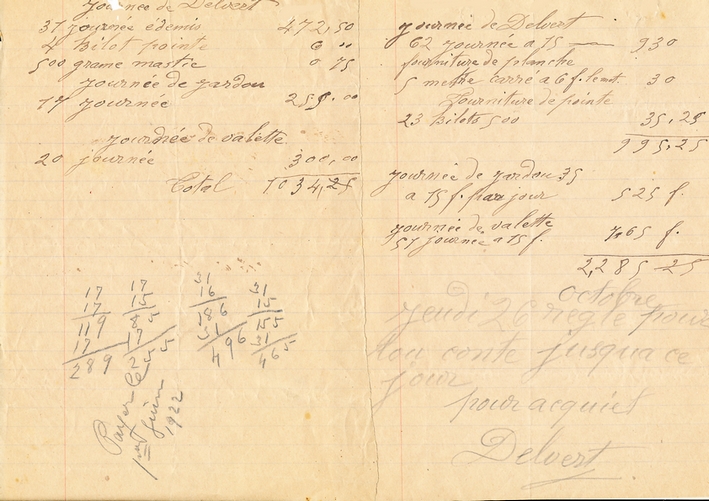 journée de Delvert
37 journée édemis 472,50
4 kilot pointe 6 ,,
500 grame mastic 0 75
journée de jardou
17 journée 255.00
journée de valette
20 journée 300,00
Total 1034,25
17
17
119
17
289
17
15
85
17
255
31
16
186
31
496
31
15
155
31
465
Payer le
1er juin
1922
journée de Delvert
62 journée a 15 — 930
fourniture de planche
5 metre carré a 6 f. le mt. 30
Fourniture de pointe
23 kilots 500 35,25
995,25
journée de jardou 35
a 15 f. par jour 525 f.
journée de valette
51 journée a 15 f. 765 f.
2,285-25
octobre
jeudi 26 règlé pour
tou conte jusqua ce
jour
pour acquiet
Delvert